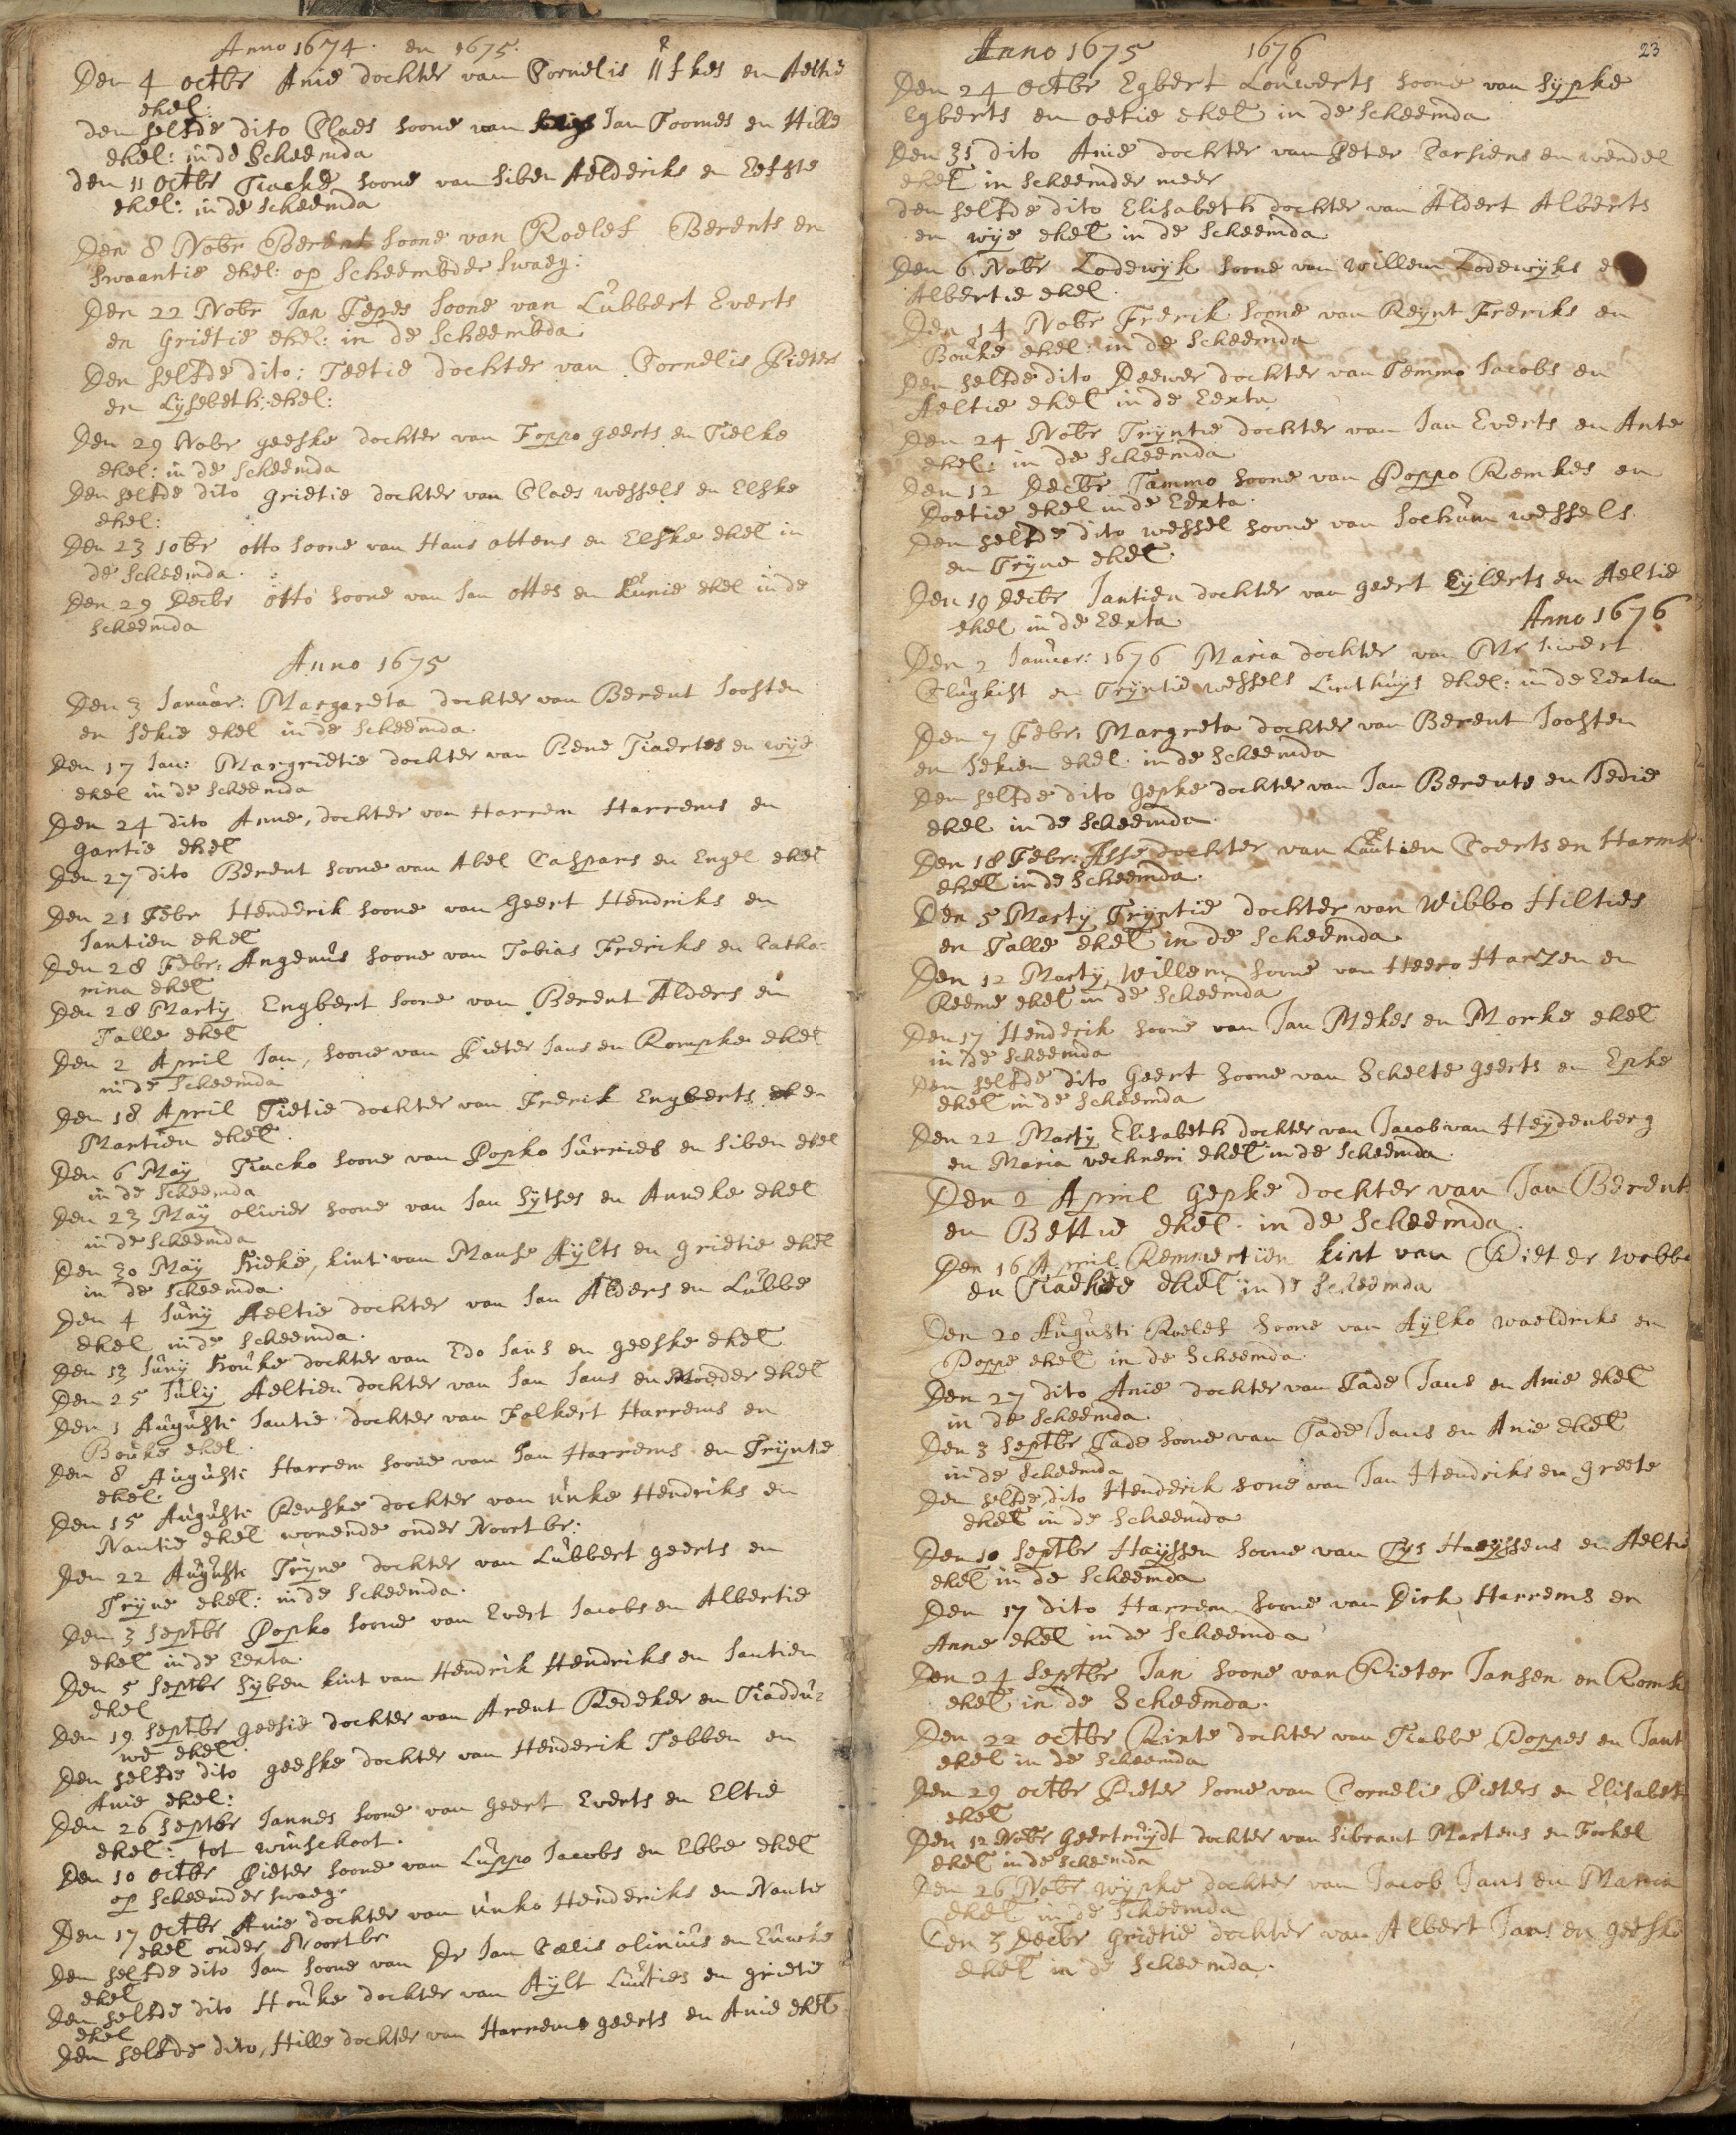 Anno 1674. en 1675.
Den 4 octbr Anie dochter van Cornelis en Aeltie
ehel:
den selfde dito Claes soone van Jan Toomes en Hille
ehel: in de Scheemda
den 11 octbr Tiacke soone van Siben Aelderiks en Eefste
ehel: in de Scheemda
Den 8 Nobr Berent soone van Roelef Berents en
Swaantie ehel: op Scheembder Swaeg:
Den 22 Nobr Jan Tepes soone van Lubbert Everts
en Grietie ehel: in de Scheembda
Den selfde dito: Teetie dochter van Cornelis Pieters
en Lysebeth: ehel:
Den 29 Nobr geeske dochter van Foppo geerts en Tielke
ehel: in de Scheemda
Den selfde dito grietie dochter van Claes wessels en Elske
ehel:
Den 23 10br otto soone van Hans ottens en Elske ehel in
de Scheemda.
Den 29 Decbr otto soone van Jan ottes en Eunie ehel in de
Scheemda
Anno 1675
Den 3 Januar: Margareta dochter van Berent Joosten
en Sekie ehel in de Scheemda
Den 17 Jan: Margrietie dochter van Bene Tiaertes en wije
ehel in de Scheemda
Den 24 dito Anne, dochter van Harrem Harrems en
gantie ehel
Den 27 dito Berent soone van Abel Caspars en Engel ehel
Den 21 Febr Henderik soone van Geert Hendriks en
Jantien ehel
Den 28 Febr: Angenus soone van Tobias Freriks en Catha-
rina ehel
Den 28 Marty Engbert soone van Berent Alders en
Talle ehel
Den 2 April Jan, soone van Pieter Jans en Rompke ehel
in de Scheemda
Den 18 April Tietie dochter van Frerik Engberts en
Martien ehel.
Den 6 May Tiacko soone van Popko Jurries en Siben ehel
in de Scheemda
Den 23 May olivier soone van Jan Sythes en Anneke ehel
in de Scheemda
Den 30 May Hieke, kint van Manse Aylts en grietie ehel
in de Scheemda.
Den 4 Juny Aeltie dochter van Jan Alders en Lubbe
ehel in de Scheemda.
Den 13 Juny Houke dochter van Edo Jans en geeske ehel
Den 25 July Aeltien dochter van Jan Jans en Moeder ehel
Den 1 Augusti Jantie dochter van Folkert Harrems en
Bouke ehel.
Den 8 Augusti Harrem soone van Jan Harrems en Tryntie
ehel.
Den 15 Augusti Renske dochter van unke Hendriks en
Nantie ehel wonende onder Noortbr:
Den 22 Augusti Tryne dochter van Lubbert geerts en
Tryne ehel: in de Scheemda.
Den 3 Septbr Popko soone van Evert Jacobs en Albertie
ehel in de Eexta.
Den 5 Septbr Syben kint van Hendrik Hendriks en Jantien
ehel
Den 19 Septbr geesie dochter van Arent Redeker en Tiaddu-
we ehel.
Den selfde dito geeske dochter van Henderik Tebben en
Anie ehel:
Den 26 Septbr Jannes soone van geert Everts en Eltie
ehel: tot winschoot.
Den 10 octbr Pieter soone van Luppo Jacobs en Ebbe ehel
op Scheemder Swaeg.
Den 17 octbr Anie dochter van unko Henderiks en Nantie
ehel onder Noortbr
Den selfde dito Jan soone van Dr Jan Calis olinius en Euwke
ehel
Den selfde dito Houke dochter van Aylt Luities en grietie
ehel
Den selfde dito, Hille dochter van Harrems geerts en Anie ehel
23
Anno 1675 1676
Den 24 octbr Egbert Louwerts soone van Sypke
Egberts en oetie ehel in de Scheemda
Den 31 dito Anie dochter van Peter Carsiens en wendel
ehel in Scheemder meer
den selfde dito Elisabeth dochter van Aldert Alberts
en wije ehel in de Scheemda
Den 6 Nobr Lodewyk soone van willem Lodewyks
Albertie ehel.
Den 14 Nobr Frerik soone van Reynt Freriks en
Bouke ehel: in de Scheemda
Den selfde dito Deewer dochter van Temmo Jacobs en
Aeltie ehel in de Eexta
Den 24 Nobr Tryntie dochter van Jan Everts en Ante
ehel: in de Scheemda
Den 12 Decbr Tammo soone van Poppo Remkes en
Doetie ehel in de Eexta.
Den selfde dito wessel soone van Jochum wessels
en Tryne ehel.
Den 19 decbr Jantien dochter van geert Eylerts en Aeltie
ehel in de Eexta
Anno 1676
Den 2 Januar: 1676 Maria dochter van Mr Siwert
Clugkist en Tryntie wessels Linthuys ehel: in de Eexta
Den 7 Febr: Margreta dochter van Berent Joosten
en Sekien ehel. in de Scheemda
Den selfde dito Gepke dochter van Jan Berents en Bedie
ehel in de Scheemda.
Den 18 Febr: Asse dochter van Luitien Coerts en Harmk
ehel in de Scheemda.
Den 5 Marty Tryntie dochter van Wibbo Hilties
en Talle ehel in de Scheemda
Den 12 Marty Willem soone van Heero Harzen en
Reeme ehel in de Scheemda
Den 17 Henderik soone van Jan Mekes en Morke ehel
in de Scheemda
Den selfde dito Geert soone van Schelte geerts en Epke
ehel in de Scheemda
Den 22 Marty Elisabeth dochter van Jacob van Heydenberg
en Maria vechneri ehel in de Scheemda.
Den 2 April Gepke dochter van Jan Berent
en Bettie ehel. in de Scheemda.
Den 16 April Remmertien kint van Pieter wobbe
en Tiadkee ehel in de Scheemda
Den 20 Augusti Roelef soone van Aylko waeldriks en
Poppe ehel in de Scheemda.
Den 27 dito Anie dochter van Tade Jans en Anie ehel
in de Scheemda.
Den 3 Septbr Tade soone van Tade Jans en Anie ehel
in de Scheemda
Den selfde dito Henderik sone van Jan Hendriks en greete
ehel in de Scheemda
Den 10 Septbr Hayssen soone van Tys Hayssens en Aelti
ehel in de Scheemda
Den 17 dito Harrem soone van Dirk Harrems en
Anne ehel in de Scheemda
Den 24 Septbr Jan soone van Pieter Jansen en Romk
ehel in de Scheemda.
Den 22 octbr Rinte dochter van Tiabbe Poppes en Jant
ehel in de Scheemda
Den 29 octbr Pieter soone van Cornelis Pieters en Elisabet
ehel
Den 12 Nobr Geertruydt dochter van Sibrant Martens en Fockel
ehel in de Scheemda
Den 26 Nobr wypke dochter van Jacob Jans en Maria
ehel in de Scheemda
Den 3 Decbr grietie dochter van Albert Jans en geeske
ehel in de Scheemda.